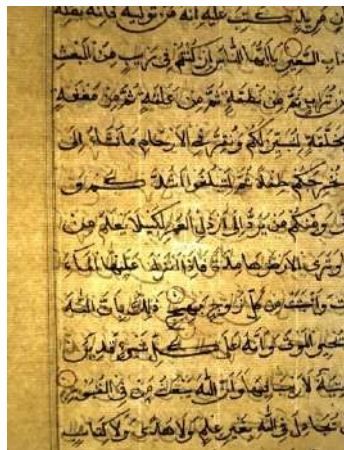 مريد كتب عليه انه من تولاه فانه يضله
السعير يا ايها الناس ان كنتم في ريب من البعث
من تراب ثم من نطفة ثم من علقة ثم من مضغة
مخلقة لنبين لكم ونقر في الارحام ما نشاء الى
نخرجكم طفلا ثم لتبلغوا اشدكم
ومنكم من يرد الى ارذل العمر لكيلا يعلم من
وترى الارض هامدة فاذا انزلنا عليها الماء
وانبتت من كل زوج بهيج ذلك بان الله
يحيي الموتى وانه على كل شيء قدير
لا ريب فيها وان الله يبعث من في القبور
يجادل في الله بغير علم ولا هدى ولا كتاب